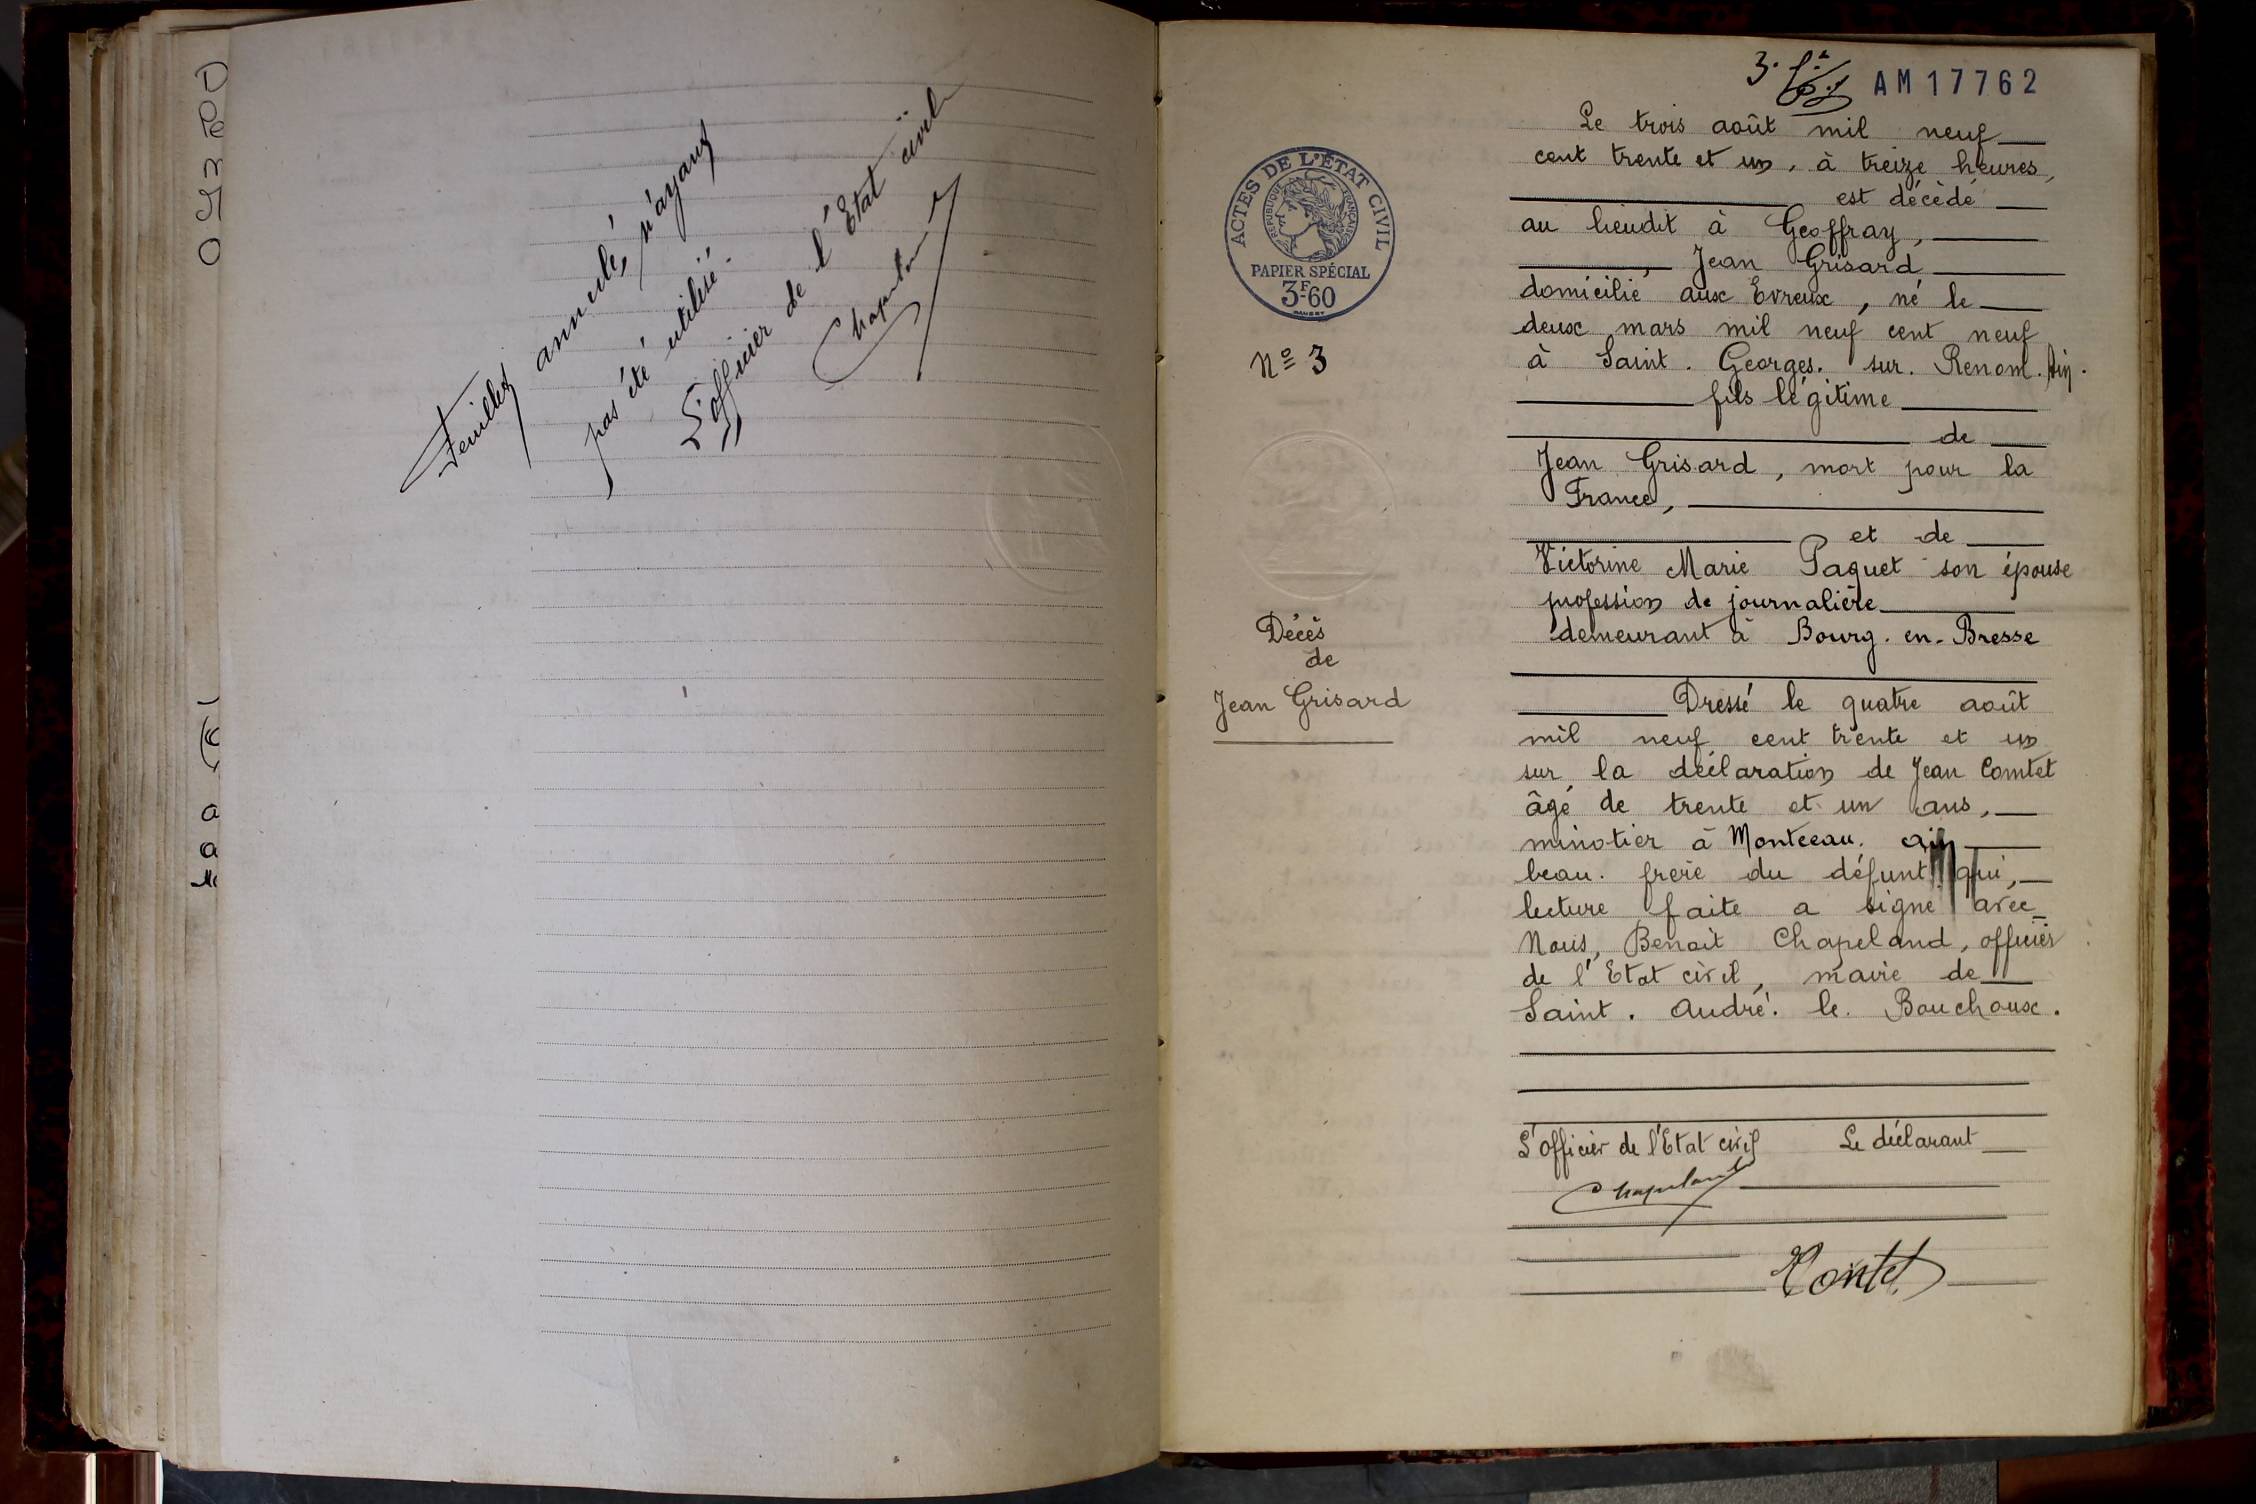 Feuillet annulé, n'ayant
pas été utilisé.
L'officier de l'Etat civil
Chapeland
AM17762
ACTES DE L'ÉTAT CIVIL
RÉPUBLIQUE FRANÇAISE
PAPIER SPÉCIAL
3F60
Nº 3
Décès
de
Jean Grisard
Le trois août mil neuf
cent trente et un, à treize heures,
est décédé
au lieudit à Geoffray,
Jean Grisard
domicilié aux Evreux, né le
deux mars mil neuf cent neuf
à Saint. Georges. sur. Renom. Ain.
fils légitime
de
Jean Grisard, mort pour la
France,
et de
Victorine Marie Paquet son épouse
profession de journalière
demeurant à Bourg. en. Bresse
Dressé le quatre août
mil neuf cent trente et un
sur la déclaration de Jean Comtet
âgé de trente et un ans,
minotier à Montceau. ain
beau. frère du défunt qui,
lecture faite a signé avec
Nous, Benoit Chapeland, officier
de l'Etat civil, maire de
Saint. André. le. Bouchoux.
L'officier de l'Etat civil Le déclarant
Chapeland
Comtet